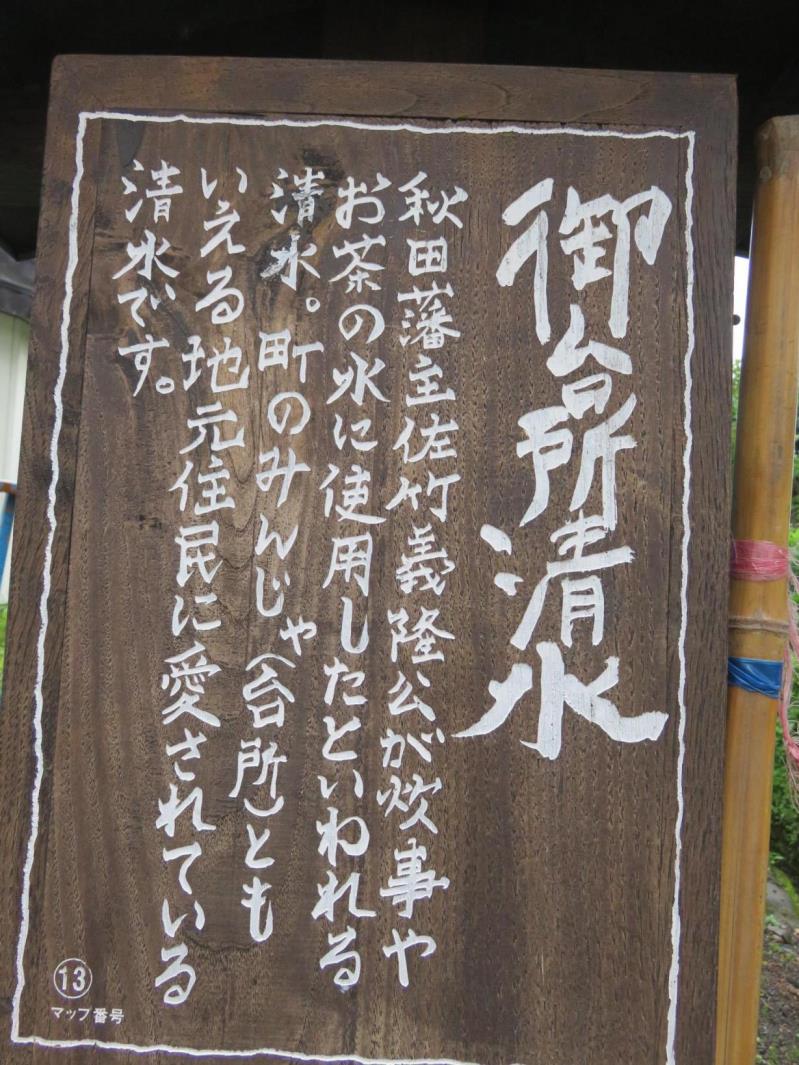 御台所清水
秋田藩主佐竹義隆公が炊事や
お茶の水に使用したといわれる
清水。町のみんじゃ(台所)とも
いえる地元住民に愛されている
清水です。
13
マップ番号